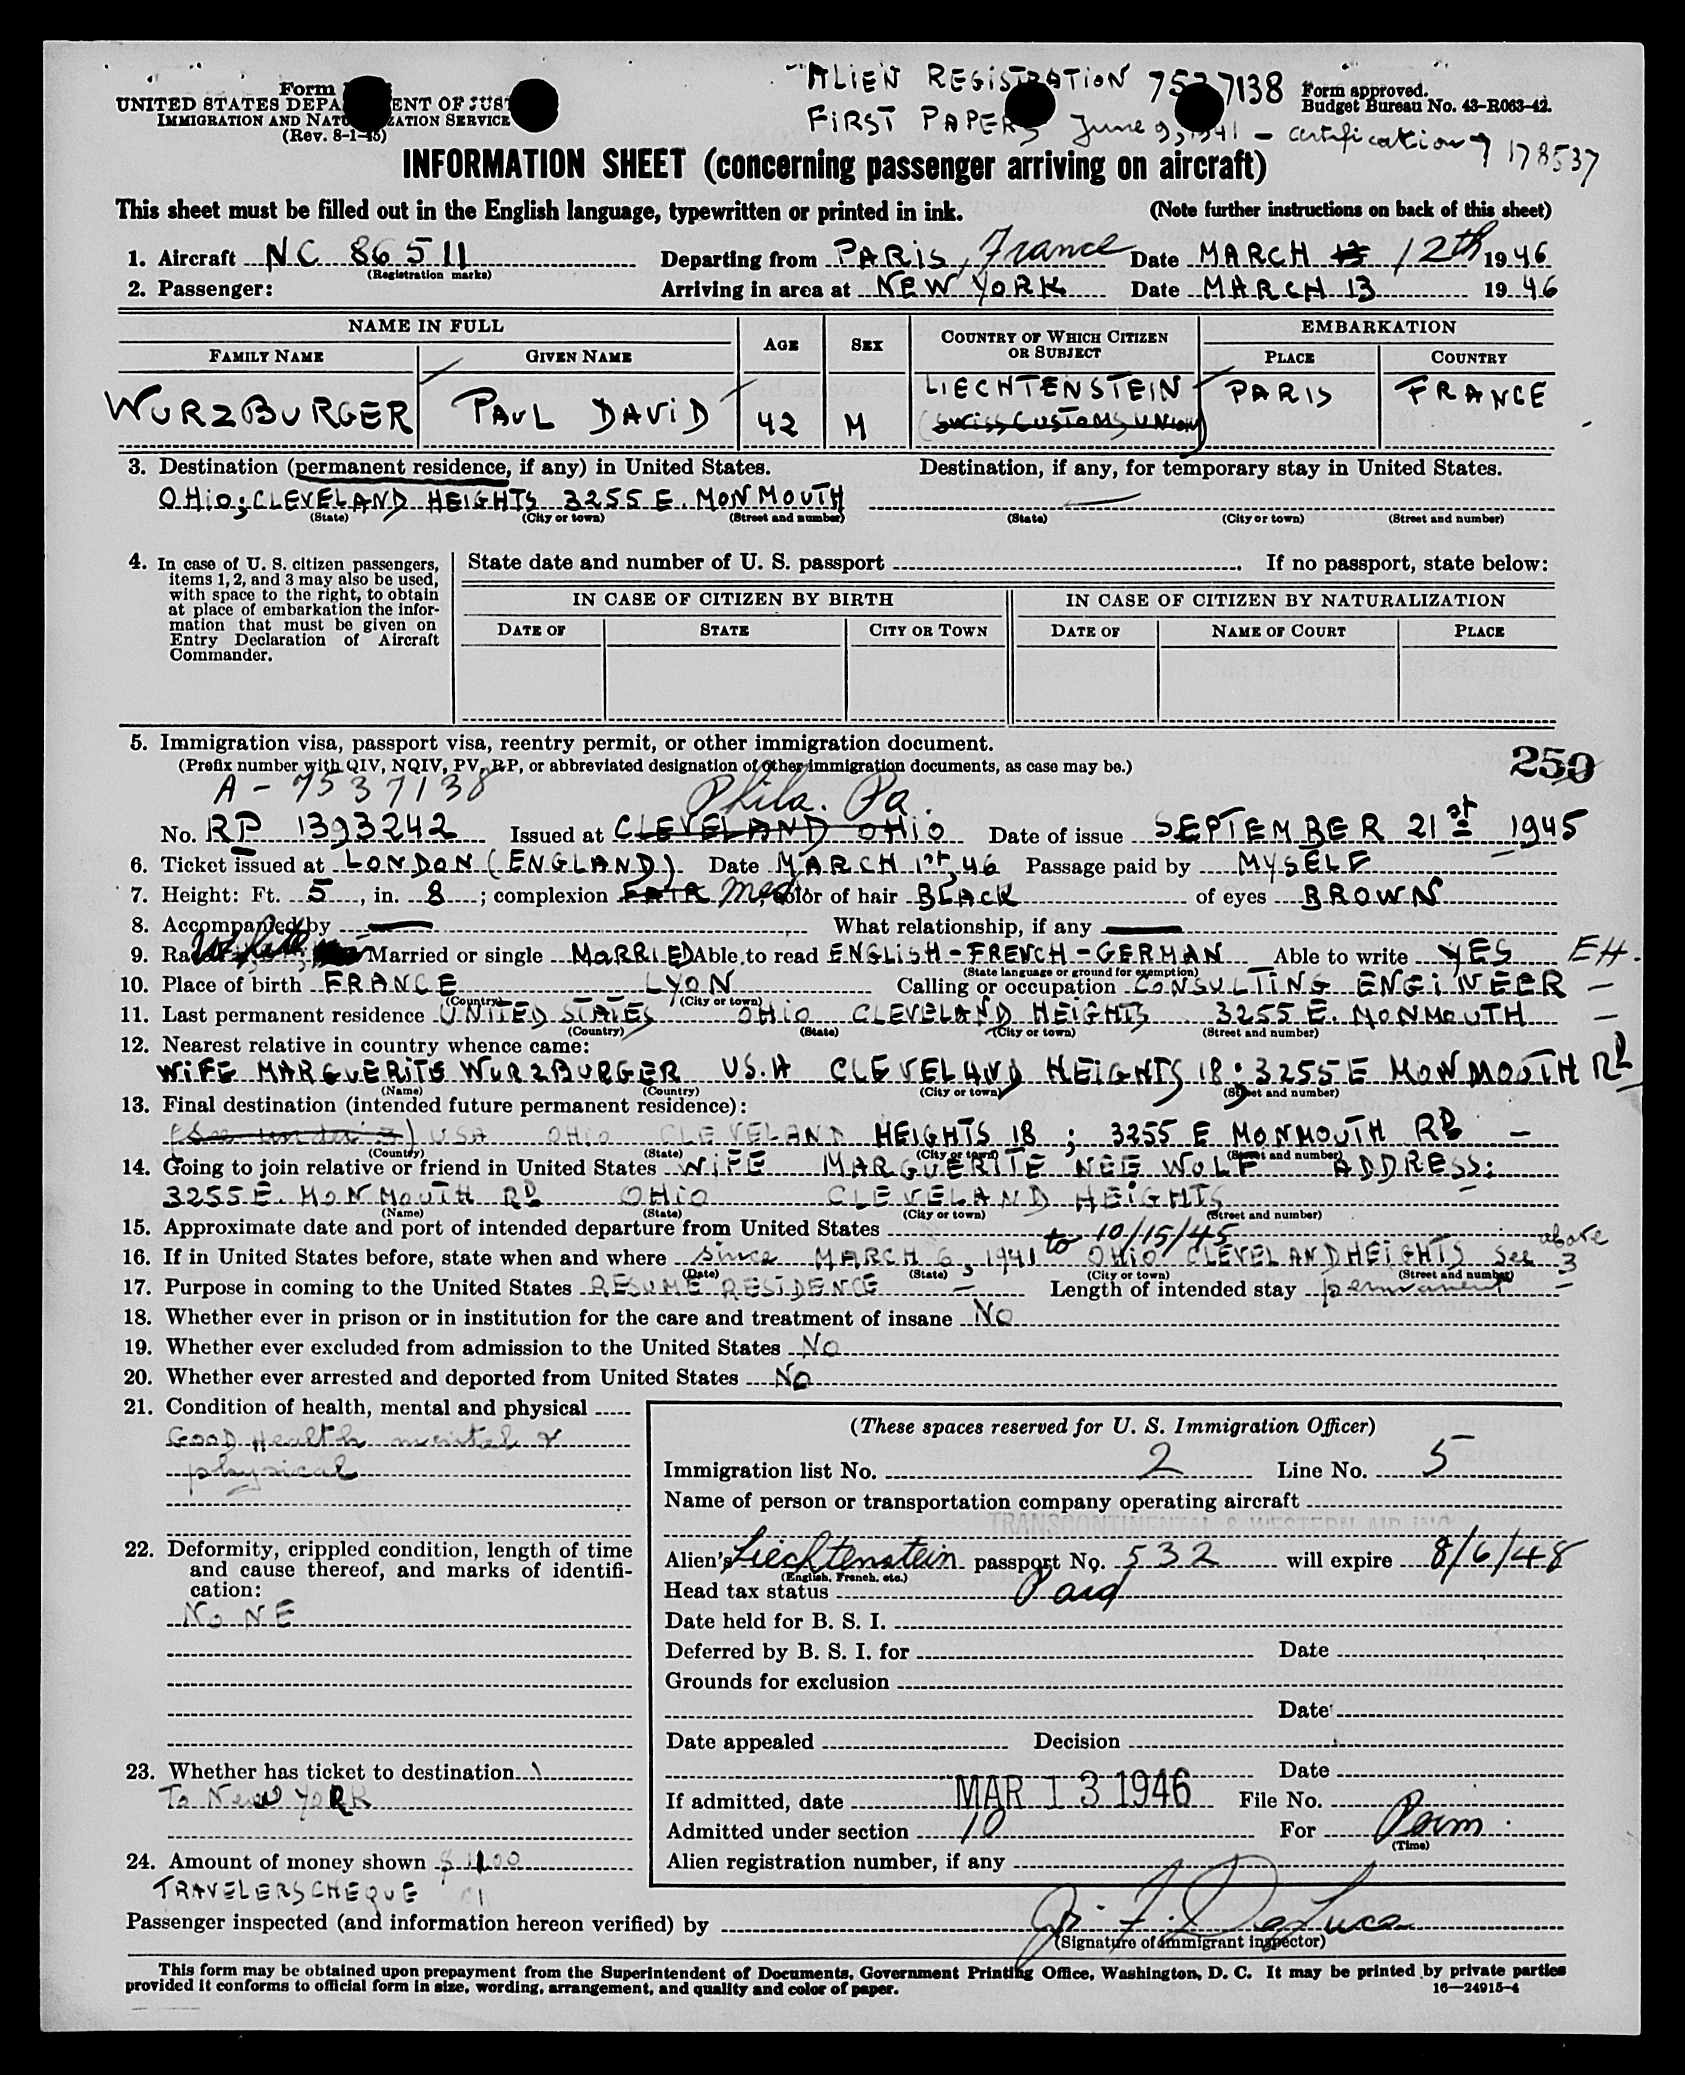 "ALIEN REGISTRATION 7537138
Form
UNITED STATES DEPA ENT OF JUST
IMMIGRATION AND NATU ZATION SERVICE
(Rev. 8-1-45)
Form approved.
Budget Bureau No. 43-R063-42.
FIRST PAPERS June 9, 1941 – certification 178537
INFORMATION SHEET (concerning passenger arriving on aircraft)
This sheet must be filled out in the English language, typewritten or printed in ink. (Note further instructions on back of this sheet)
1. Aircraft NC 86511 Departing from PARIS, France Date MARCH 12th 1946
(Registration marks)
2. Passenger: Arriving in area at NEW YORK Date MARCH 13 1946
NAME IN FULL AGE SEX COUNTRY OF WHICH CITIZEN OR SUBJECT EMBARKATION
FAMILY NAME GIVEN NAME PLACE COUNTRY
WURZBURGER PAUL DAVID 42 M LIECHTENSTEIN PARIS FRANCE
(SWISS CUSTOMS UNION)
3. Destination (permanent residence, if any) in United States. Destination, if any, for temporary stay in United States.
OHIO; CLEVELAND HEIGHTS 3255 E. MONMOUTH
(State) (City or town) (Street and number) (State) (City or town) (Street and number)
4. In case of U. S. citizen passengers, items 1, 2, and 3 may also be used, with space to the right, to obtain at place of embarkation the information that must be given on Entry Declaration of Aircraft Commander.
State date and number of U. S. passport If no passport, state below:
IN CASE OF CITIZEN BY BIRTH IN CASE OF CITIZEN BY NATURALIZATION
DATE OF STATE CITY OR TOWN DATE OF NAME OF COURT PLACE
5. Immigration visa, passport visa, reentry permit, or other immigration document.
(Prefix number with QIV, NQIV, PV, RP, or abbreviated designation of other immigration documents, as case may be.)
250
A-7537138 Phila. Pa.
No. RP 1393242 Issued at CLEVELAND OHIO Date of issue SEPTEMBER 21st 1945
6. Ticket issued at LONDON (ENGLAND) Date MARCH 1st, 46 Passage paid by MYSELF
7. Height: Ft. 5, in. 8; complexion FAIR Med, color of hair BLACK of eyes BROWN
8. Accompanied by What relationship, if any
9. Race Married or single MARRIED Able to read ENGLISH-FRENCH-GERMAN Able to write YES EH.
(State language or ground for exemption)
10. Place of birth FRANCE LYON Calling or occupation CONSULTING ENGINEER –
(Country) (City or town)
11. Last permanent residence UNITED STATES OHIO CLEVELAND HEIGHTS 3255 E. MONMOUTH –
(Country) (State) (City or town) (Street and number)
12. Nearest relative in country whence came:
WIFE MARGUERITE WURZBURGER US.A CLEVELAND HEIGHTS 18; 3255 E MONMOUTH Rd
(Name) (Country) (City or town) (Street and number)
13. Final destination (intended future permanent residence):
(See under 3) USA OHIO CLEVELAND HEIGHTS 18; 3255 E MONMOUTH RD –
(Country) (State) (City or town) (Street and number)
14. Going to join relative or friend in United States WIFE MARGUERITE NEE WOLF ADDRESS:
3255 E. MONMOUTH RD OHIO CLEVELAND HEIGHTS
(Name) (State) (City or town) (Street and number)
15. Approximate date and port of intended departure from United States
16. If in United States before, state when and where since MARCH 6, 1941 to 10/15/45 OHIO CLEVELAND HEIGHTS see above 3
(Date) (State) (City or town) (Street and number)
17. Purpose in coming to the United States RESUME RESIDENCE – Length of intended stay permanent –
18. Whether ever in prison or in institution for the care and treatment of insane No
19. Whether ever excluded from admission to the United States No
20. Whether ever arrested and deported from United States No
21. Condition of health, mental and physical
GOOD Health mental &
physical
22. Deformity, crippled condition, length of time and cause thereof, and marks of identification:
NONE
23. Whether has ticket to destination
To New YORK
24. Amount of money shown
TRAVELERS CHEQUE
(These spaces reserved for U. S. Immigration Officer)
Immigration list No. 2 Line No. 5
Name of person or transportation company operating aircraft
TRANSCONTINENTAL & WESTERN AIR INC
Alien's Liechtenstein passport No. 532 will expire 8/6/48
(English, French, etc.)
Head tax status Paid
Date held for B. S. I.
Deferred by B. S. I. for Date
Grounds for exclusion
Date
Date appealed Decision
Date
If admitted, date MAR 13 1946 File No.
Admitted under section 10 For Perm
(Time)
Alien registration number, if any
Passenger inspected (and information hereon verified) by J. F. DeLuca
(Signature of immigrant inspector)
This form may be obtained upon prepayment from the Superintendent of Documents, Government Printing Office, Washington, D. C. It may be printed by private parties
provided it conforms to official form in size, wording, arrangement, and quality and color of paper. 16—24915-4